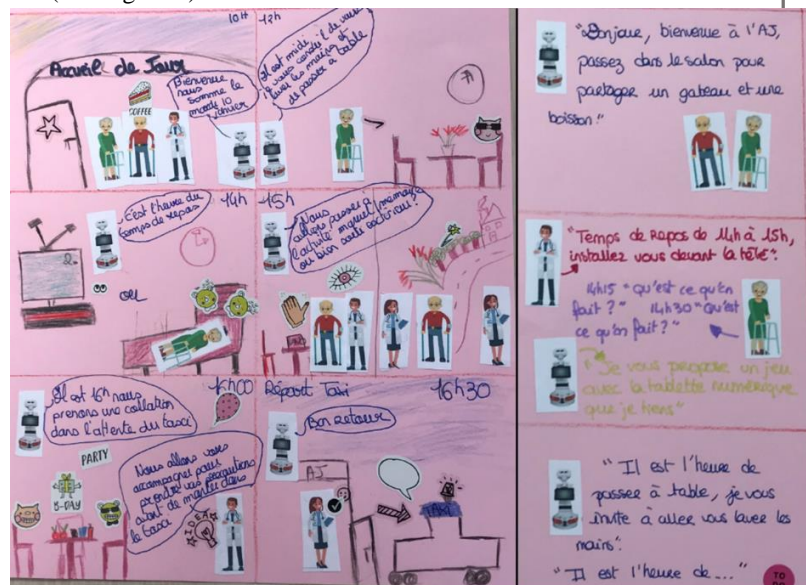 10H
Accueil de Jour
COFFEE
Bienvenue
nous
somme le
mardi 10
janvier
12h
Il est midi
vous conseil de vous
laver les mains et
de passer a table
14h
C'est l'heure du
temps de repos
ou
15h
Nous
allons passer à
l'activité manuel, memoire
ou bien sortie exterieur?
16h00
Il est 16h nous
prenons une collation
dans l'attente du taxi
PARTY
B-DAY
IDEA
Nous allons vous
accompagner pour
prendre vos précautions
avant de monter dans
le taxi
Départ Taxi
16h30
Bon retour
AJ
TAXI
"Bonjour, bienvenue à l'AJ,
passez dans le salon pour
partager un gateau et une
boisson!"
"Temps de Repos de 14h à 15h,
installez vous devant la télé".
14h15 "Qu'est ce qu'on
fait?" 14h30 "Qu'est
ce qu'on fait?"
"Je vous propose un jeu
avec la tablette numérique
que je tiens"
"Il est l'heure de
passer à table, je vous
invite à aller vous laver les
mains".
"Il est l'heure de..."
TO